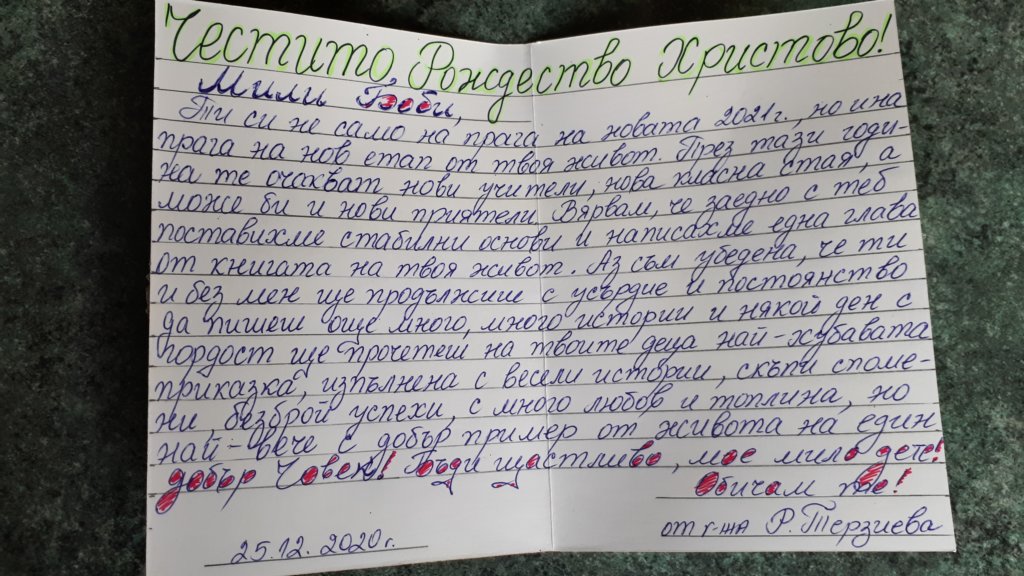 Честито Рождество Христово!
Мили Гоби,
Ти си не само на прага на новата 2021г., но и на
прага на нов етап от твоя живот. През тази годи-
на те очакват нови учители, нова класна стая, а
може би и нови приятели. Вярвам, че заедно с теб
поставихме стабилни основи и написахме една глава
от книгата на твоя живот. Аз съм убедена, че ти
и без мен ще продължиш с усърдие и постоянство
да пишеш още много, много истории и някой ден с
гордост ще прочетеш на твоите деца най-хубавата
приказка, изпълнена с весели истории, скъпи споме-
ни, безброй успехи, с много любов и топлина, но
най-вече с добър пример от живота на един
добър Човек! Бъди щастливо, мое мило дете!
Обичам те!
от г-жа Р. Терзиева
25.12.2020г.